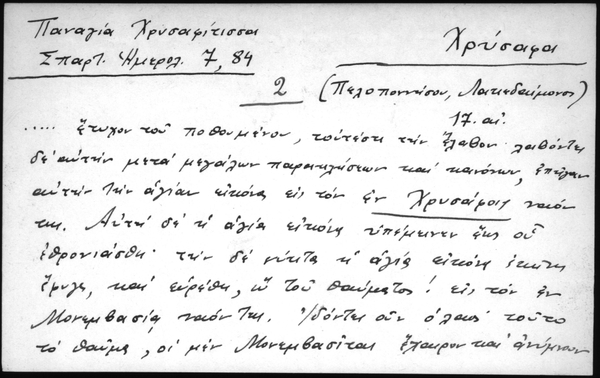 Παναγία Χρυσαφίτισσα
Σπαρτ. Ημερολ. 7, 84
Χρύσαφα
2 (Πελοποννήσου, Λακεδαίμονος)
17. αἰ.
..... ἔτυχον τοῦ ποθουμένου, τοὐτέστι τὴν ἔλαβον· λαβόντες
δὲ αὐτὴν μετὰ μεγάλων παρακλήσεων καὶ κανόνων, ἐπῆγαν
αὐτὴν τὴν ἁγίαν εἰκόνα εἰς τὸν ἐν Χρυσάφοις ναόν
της. Αὐτὴ δὲ ἡ ἁγία εἰκόνα ὑπέμεινεν ἕως οὗ
ἐθρονιάσθη· τὴν δὲ νύκτα ἡ ἁγία εἰκόνα ἐκείνη
ἔφυγε, καὶ εὑρέθη, ὢ τοῦ θαύματος! εἰς τὸν ἐν
Μονεμβασίᾳ ναόν της. Ἰδόντες οὖν ὁ λαὸς τοῦτο
τὸ θαῦμα, οἱ μὲν Μονεμβασῖται ἔχαιρον καὶ ἀνύμνουν